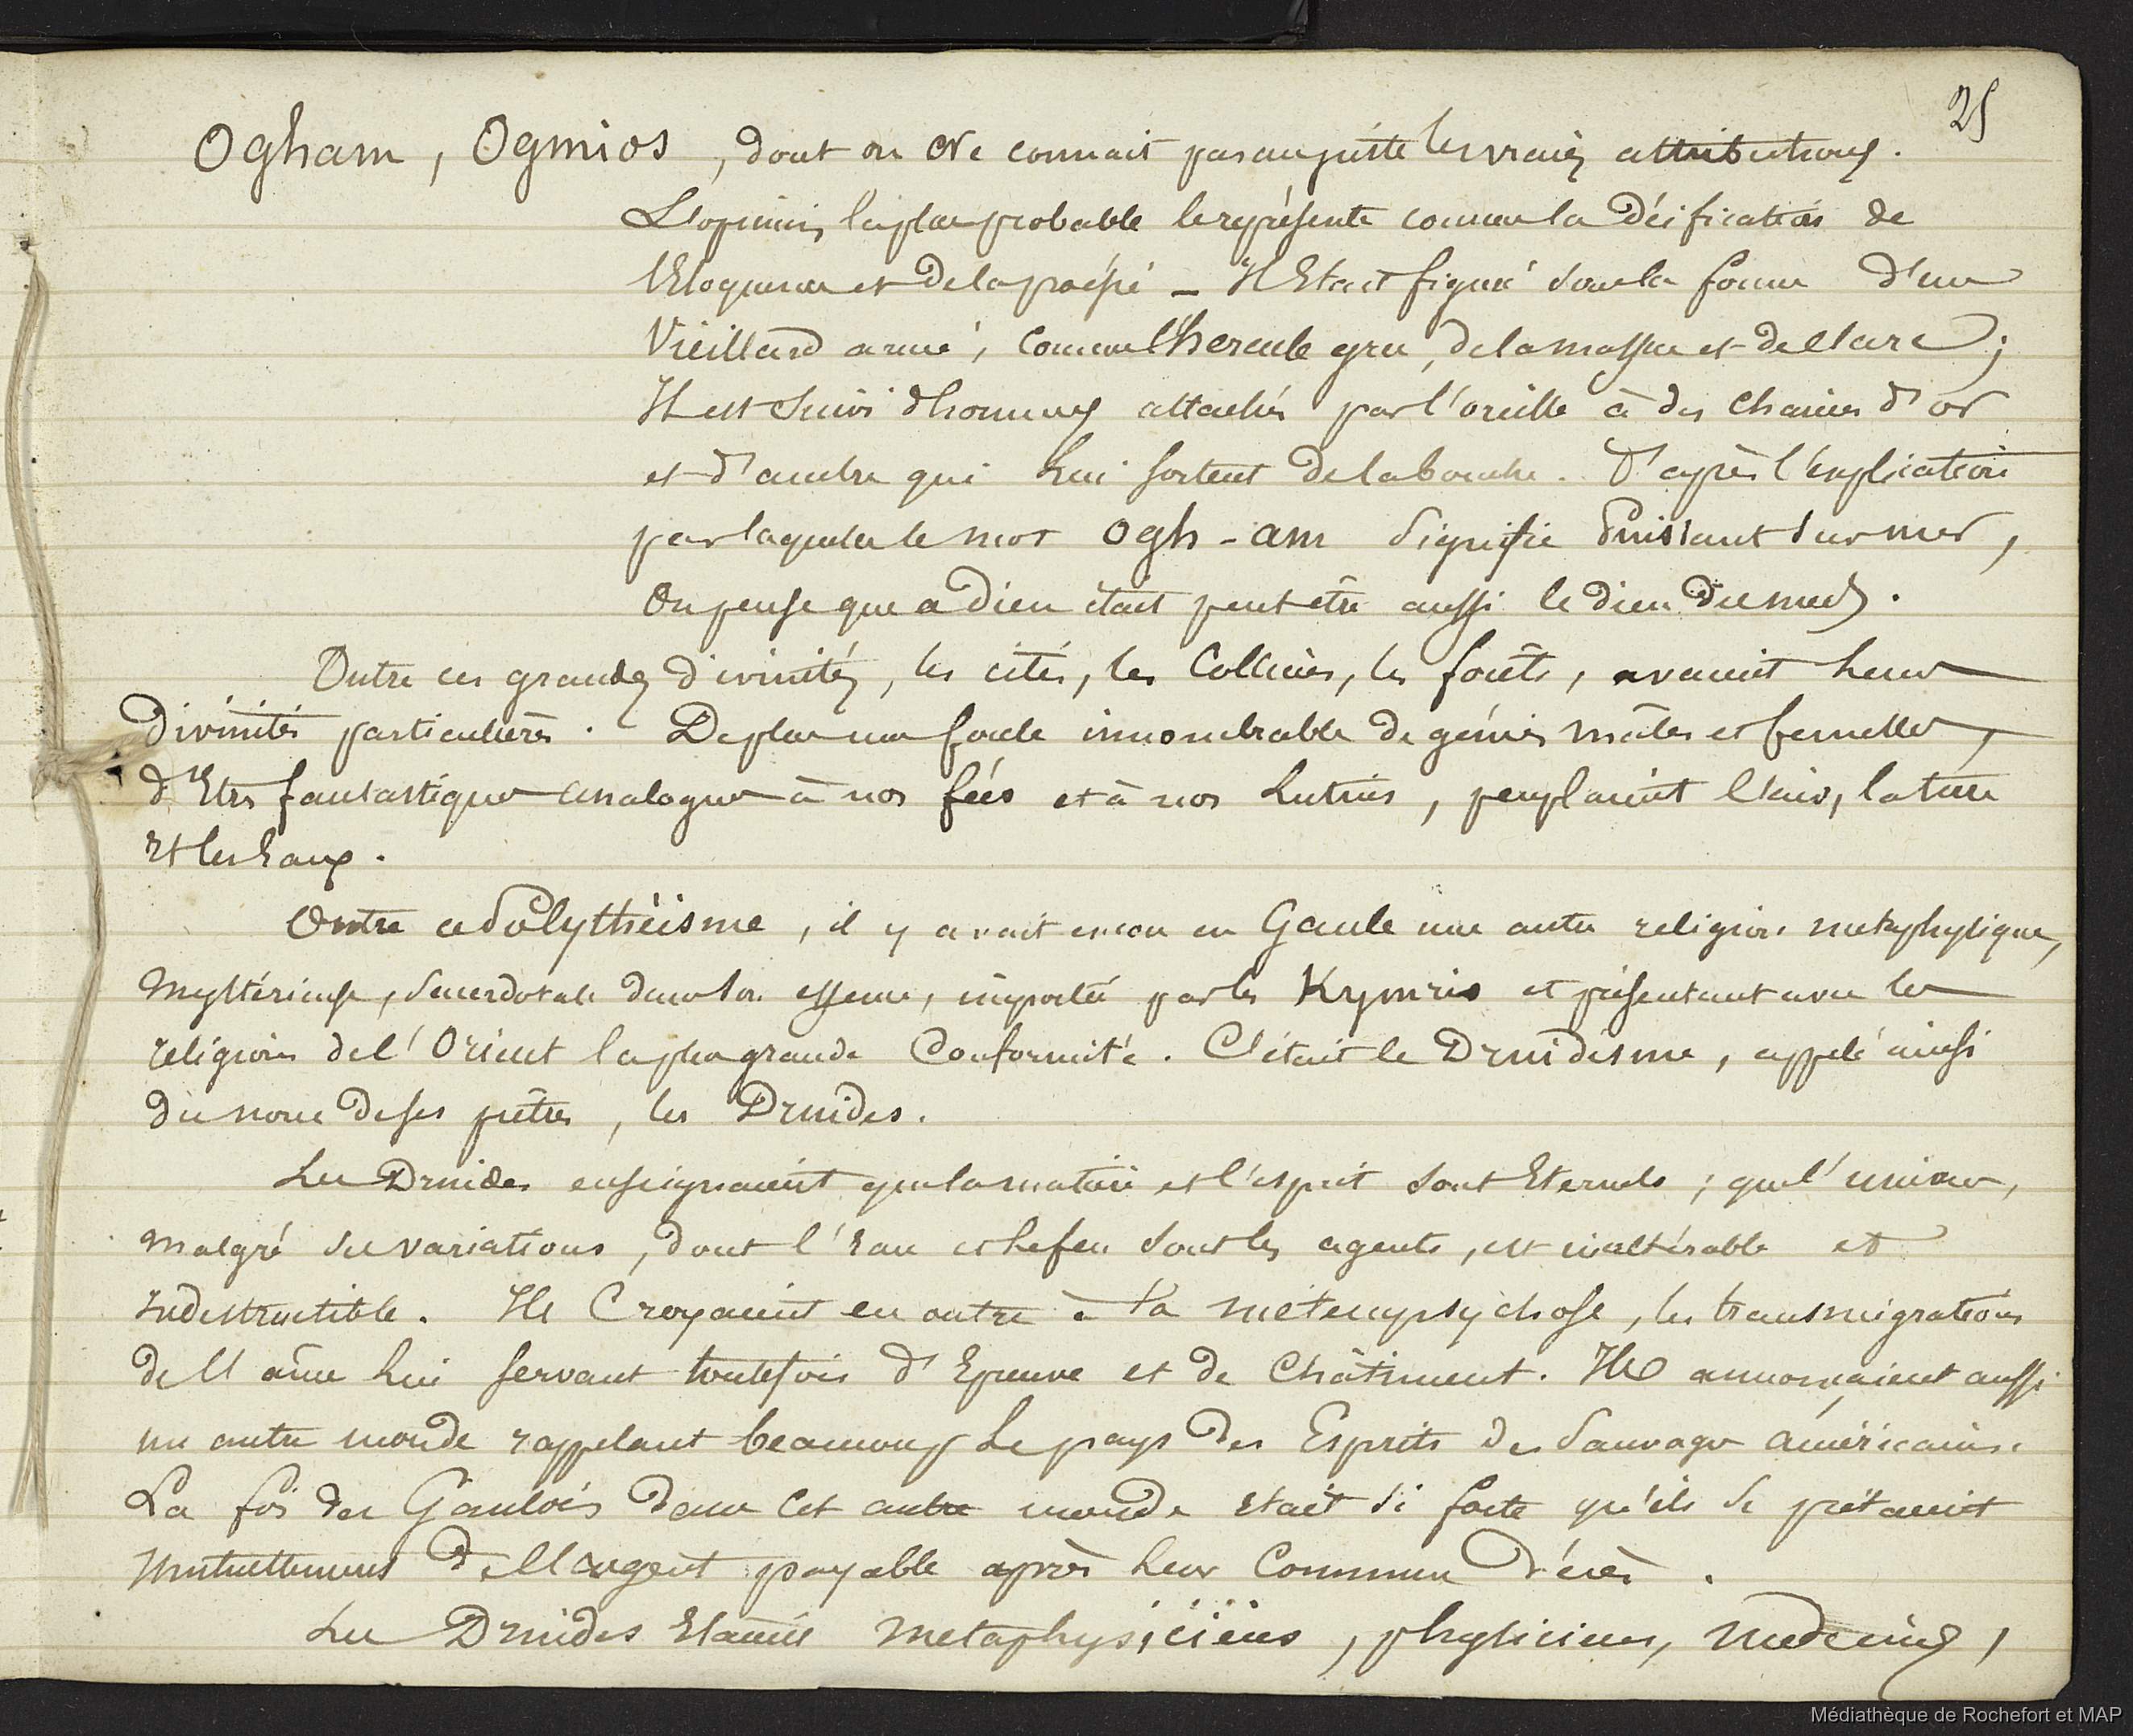 25
Ogham, Ogmios, dont on ne connait pas au juste les vraies attributions.
L'opinion la plus probable le représente comme la Déification de
l'Eloquence et de la poésie – Il Etait figuré sous la forme d'un
Vieillard armé, comme l'hercule grec, de la massue et de l'arc ;
Il est suivi d'hommes attachés par l'oreille à des chaines d'or
et d'ambre qui lui sortent de la bouche. D'après l'explication
par laquelle le mot Ogh-am signifie Puissant sur mer,
On pense que ce Dieu était peut être aussi le dieu des mers.
Outre ces grandes divinités, les cités, les Collines, les forêts, avaient leurs
Divinités particulières. De plus une foule innombrable de génies mâles et femelles,
d'Etres fantastiques analogues à nos fées et à nos lutins, peuplaient l'air, la terre
Et les Eaux.
Outre ce Polythéisme, il y avait encore en Gaule une autre religion metaphysique,
Mystérieuse, Sacerdotale dans son essence, importée par les Kymris et présentant avec les
religions de l'Orient la plus grande Conformité. C'était le Druidisme, appelé ainsi
du nom de ses prêtres, les Druides.
Les Druides enseignaient que la matière et l'esprit sont Eternels ; que l'univers,
malgré ses variations, dont l'eau et le feu sont les agents, est inaltérable et
Indestructible. Ils Croyaient en outre à la métempsychose, les transmigrations
de l'âme lui servant toutefois d'Epreuve et de Châtiment. Ils annonçaient aussi
un autre monde rappelant beaucoup le pays des Esprits des Sauvages américains.
La foi des Gaulois dans Cet autre monde etait si forte qu'ils se prétaient
Mutuellement de l'argent payable après leur Commun décès.
Les Druides Etaient Metaphysiciens, physiciens, Medecins,
Médiathèque de Rochefort et MAP